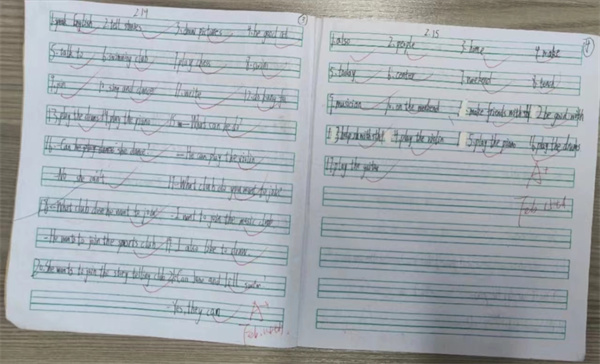 2.14
1.good English 2.tell stories 3.show pictures 4.be good at
5.talk to 6.swimming club 7.play chess 8.swim
9.join 10.sing and dance 11.write 12.do kung fu
13.play the drums 14.play the piano 15.—What can he do?
16.Can he dance
—He can play the violin
—No he can't 17.—What club do you want to join?
18.—What club does he want to join —I want to join the music club
—He wants to join the sports club 19.I also like to draw
20.She wants to join the story telling club 21.Can Jane and Bill swim
—Yes, they can
A+
2.15
1.also 2.people 3.home 4.make
5.today 6.center 7.weekend 8.teach
9.musician 10.on the weekend make friends with 12.be good with
13.help with 14.play the violin 15.play the piano 16.play the drums
17.play the guitar
A+